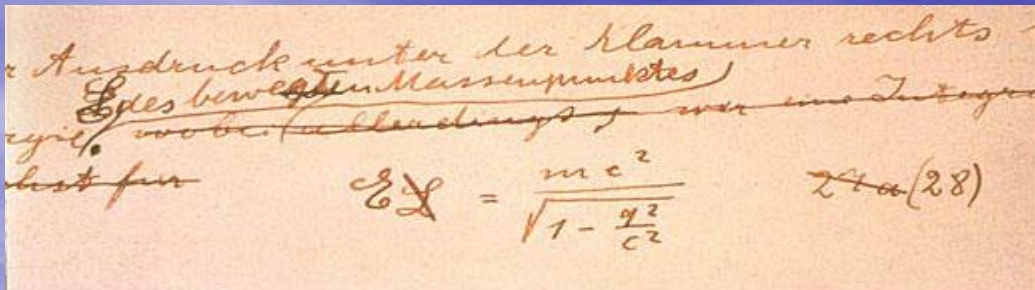 r Ausdruck unter der Klammer rechts
E des bewegten Massenpunktes
rgie, wobei (allerdings, wer eine Integr
chst fur
E L = mc² / √(1 - q²/c²) 27a (28)